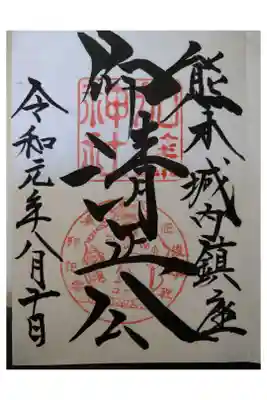 熊本城内鎮座
御清正公
加藤神社
令和元年八月十日